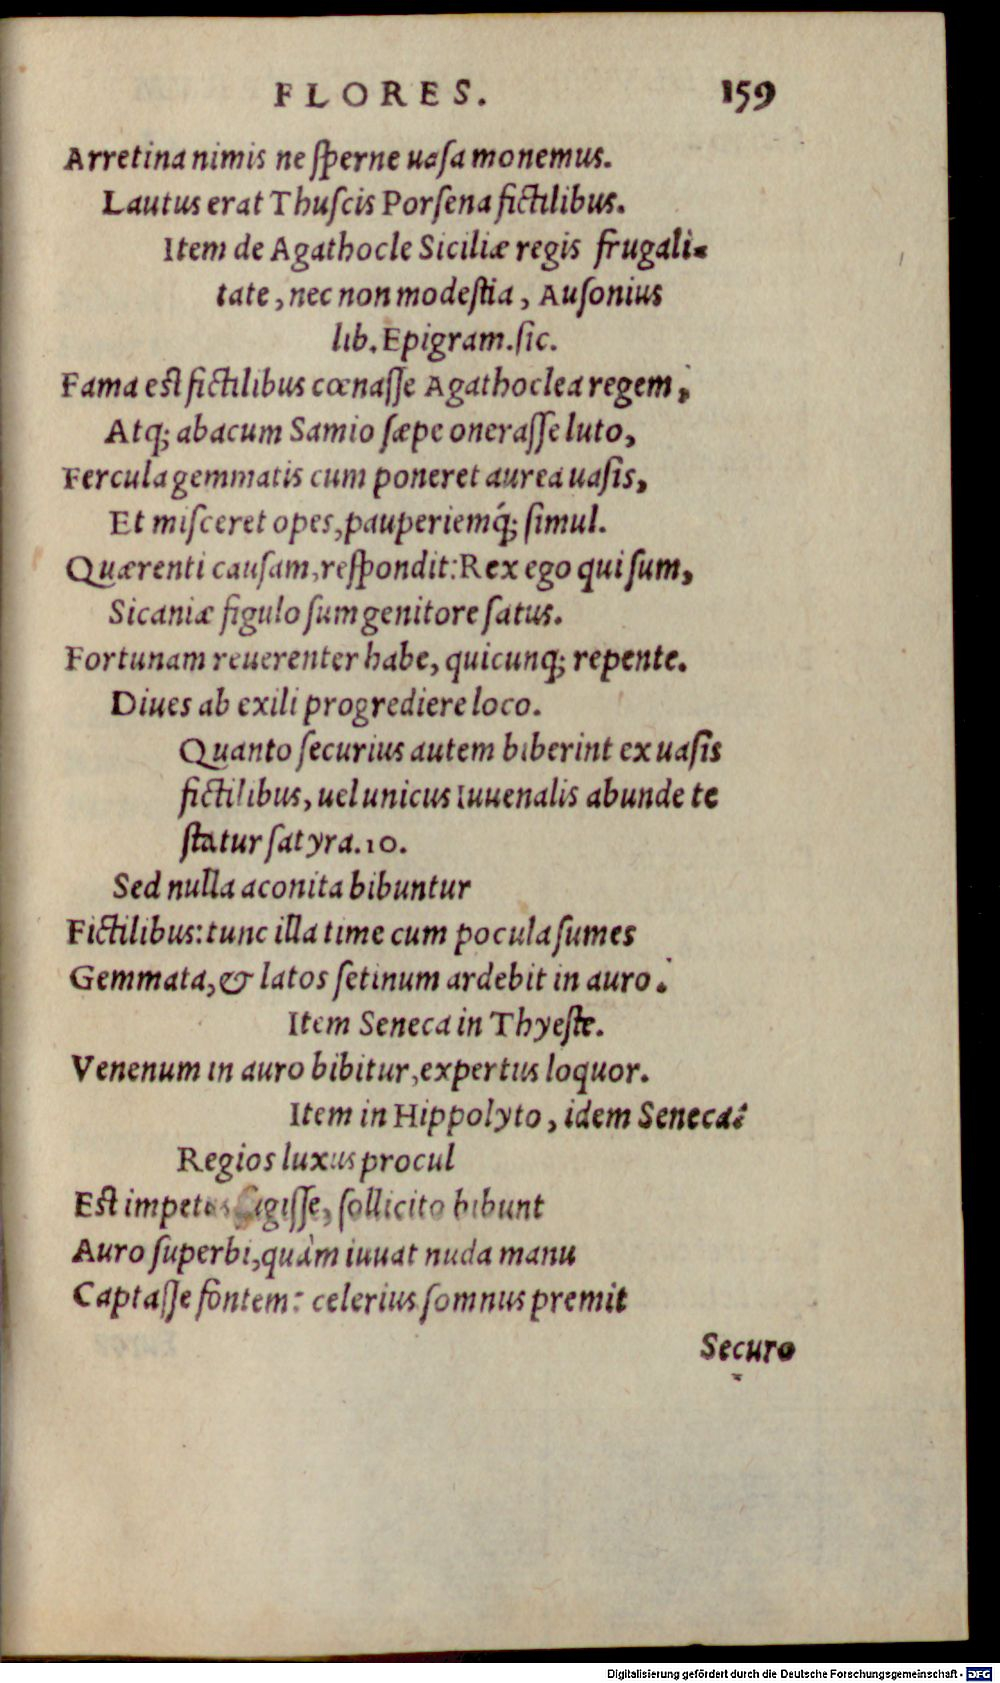 FLORES. 159
Arretina nimis ne ſperne uaſa monemus.
Lautus erat Thuſcis Porſena fictilibus.
Item de Agathocle Siciliæ regis frugali-
tate, nec non modeſtia, Auſonius
lib. Epigram. ſic.
Fama eſt fictilibus cœnaſſe Agathoclea regem,
Atq; abacum Samio ſæpe oneraſſe luto,
Fercula gemmatis cum poneret aurea uaſis,
Et miſceret opes, pauperiemq́; ſimul.
Quærenti cauſam, reſpondit: Rex ego qui ſum,
Sicaniæ figulo ſum genitore ſatus.
Fortunam reuerenter habe, quicunq; repente.
Diues ab exili progrediere loco.
Quanto ſecurius autem biberint ex uaſis
fictilibus, uel unicus Iuuenalis abunde te
ſtatur ſatyra. 10.
Sed nulla aconita bibuntur
Fictilibus: tunc illa time cum pocula ſumes
Gemmata, & latos ſetinum ardebit in auro.
Item Seneca in Thyeſte.
Venenum in auro bibitur, expertus loquor.
Item in Hippolyto, idem Seneca:
Regios luxus procul
Eſt ſollicito bibunt
Auro ſuperbi, quàm iuuat nuda manu
Captaſſe fontem: celerius ſomnus premit
Securo
Digitalisierung gefördert durch die Deutsche Forschungsgemeinschaft - DFG